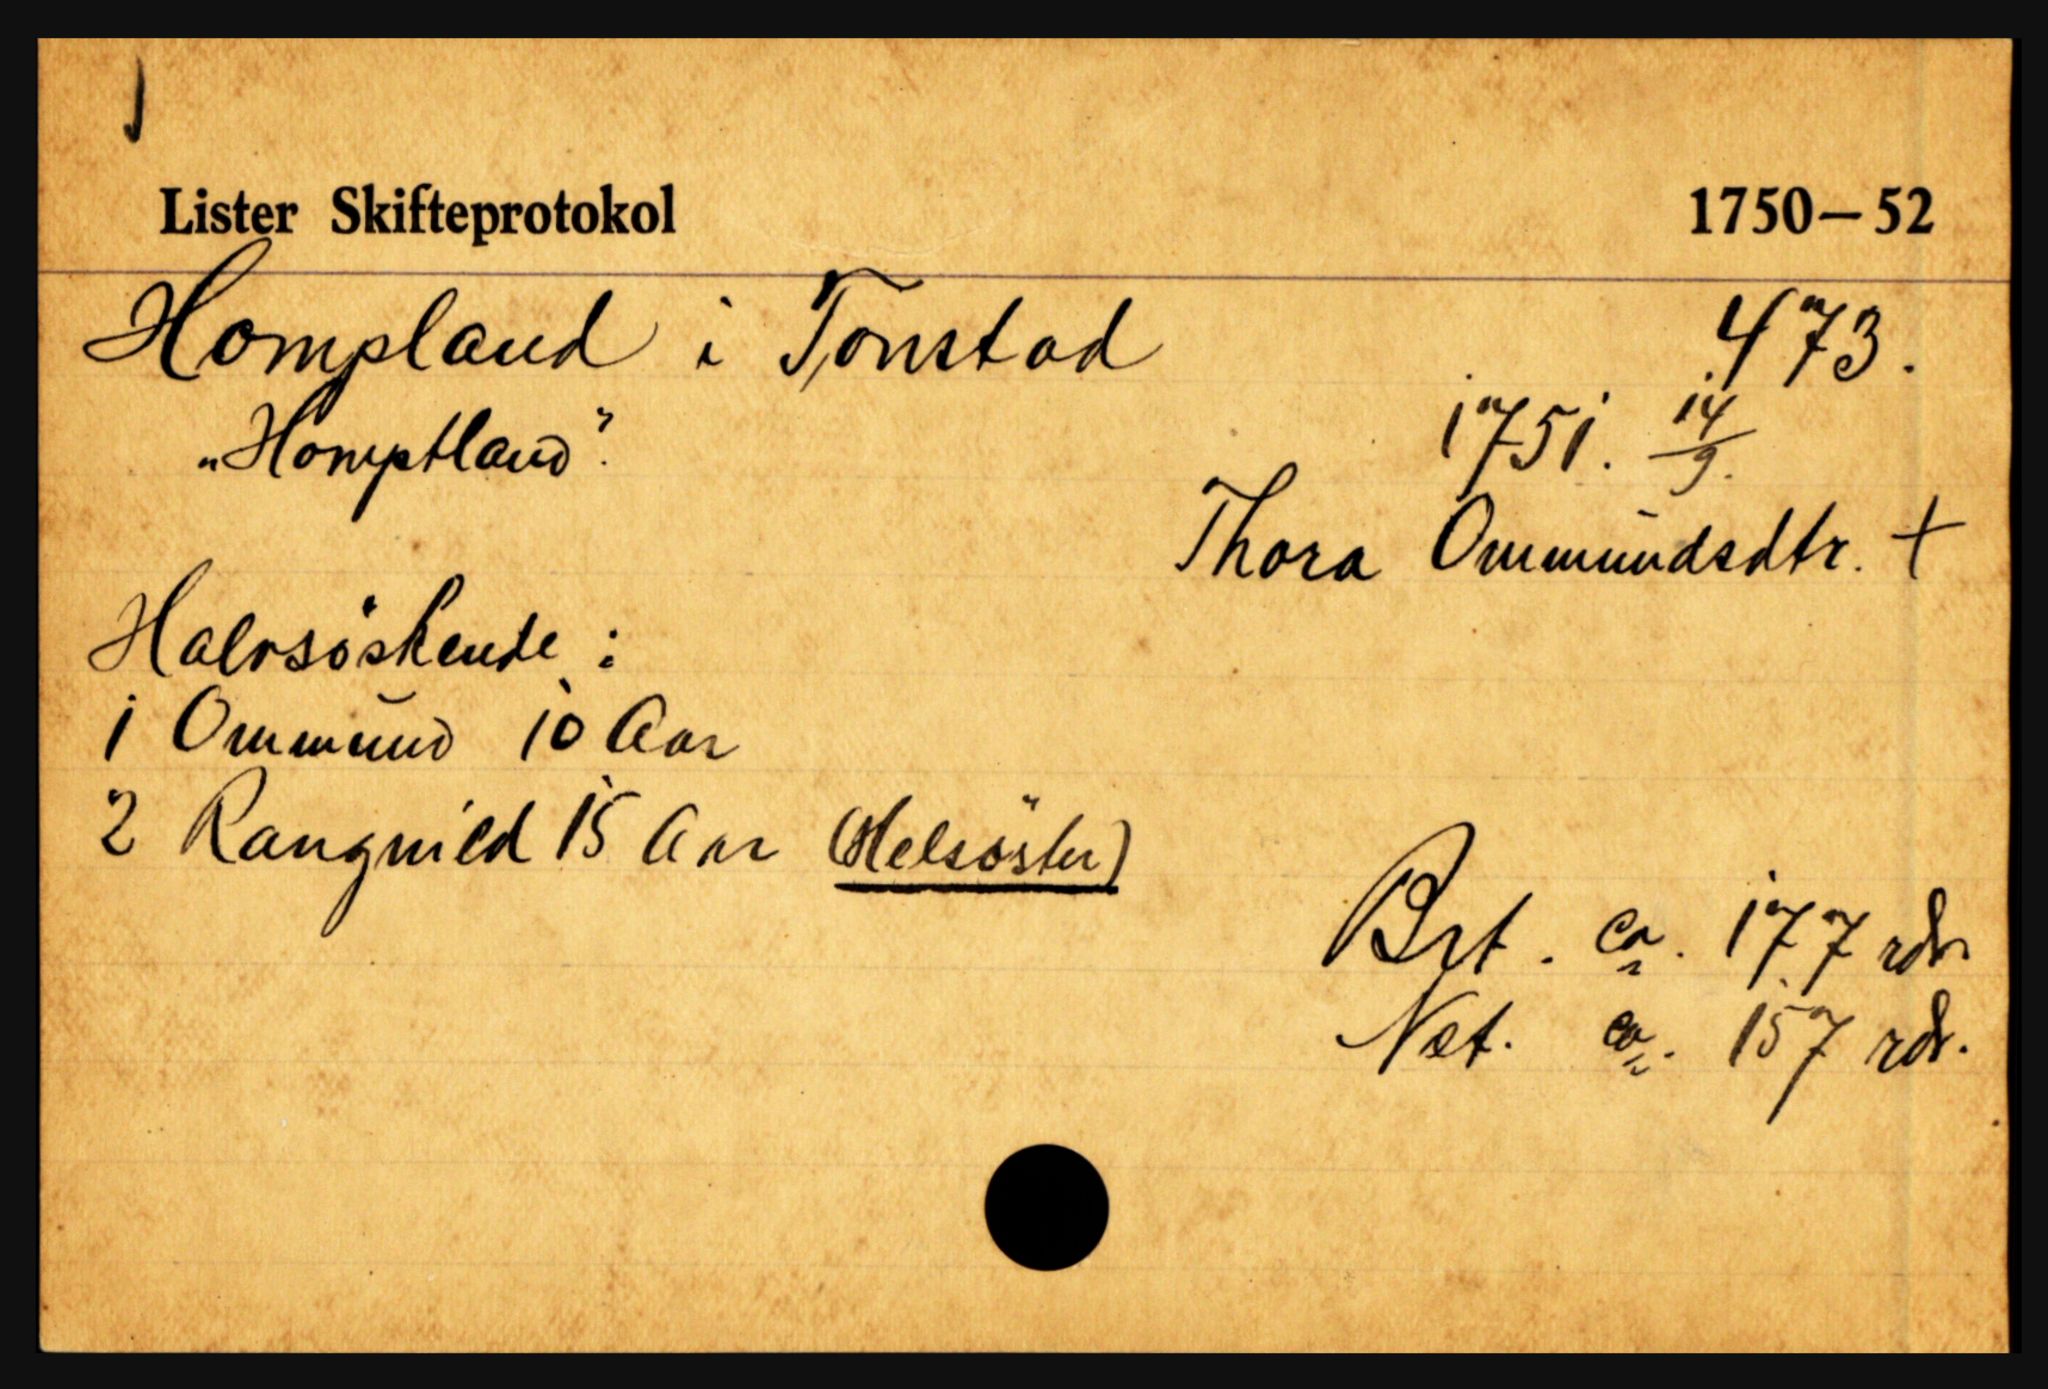 Lister Skifteprotokol 1750—52
Hompland i Tonstad 473.
"Homptland". 1751. 14/9.
Thora Ommundsdtr. +
Halvsöskende :
1 Ommund 10 Aar
2 Rangnild 15 Aar (Helsöster)
Brt. ca. 177 rdr.
Net. ca. 157 rdr.